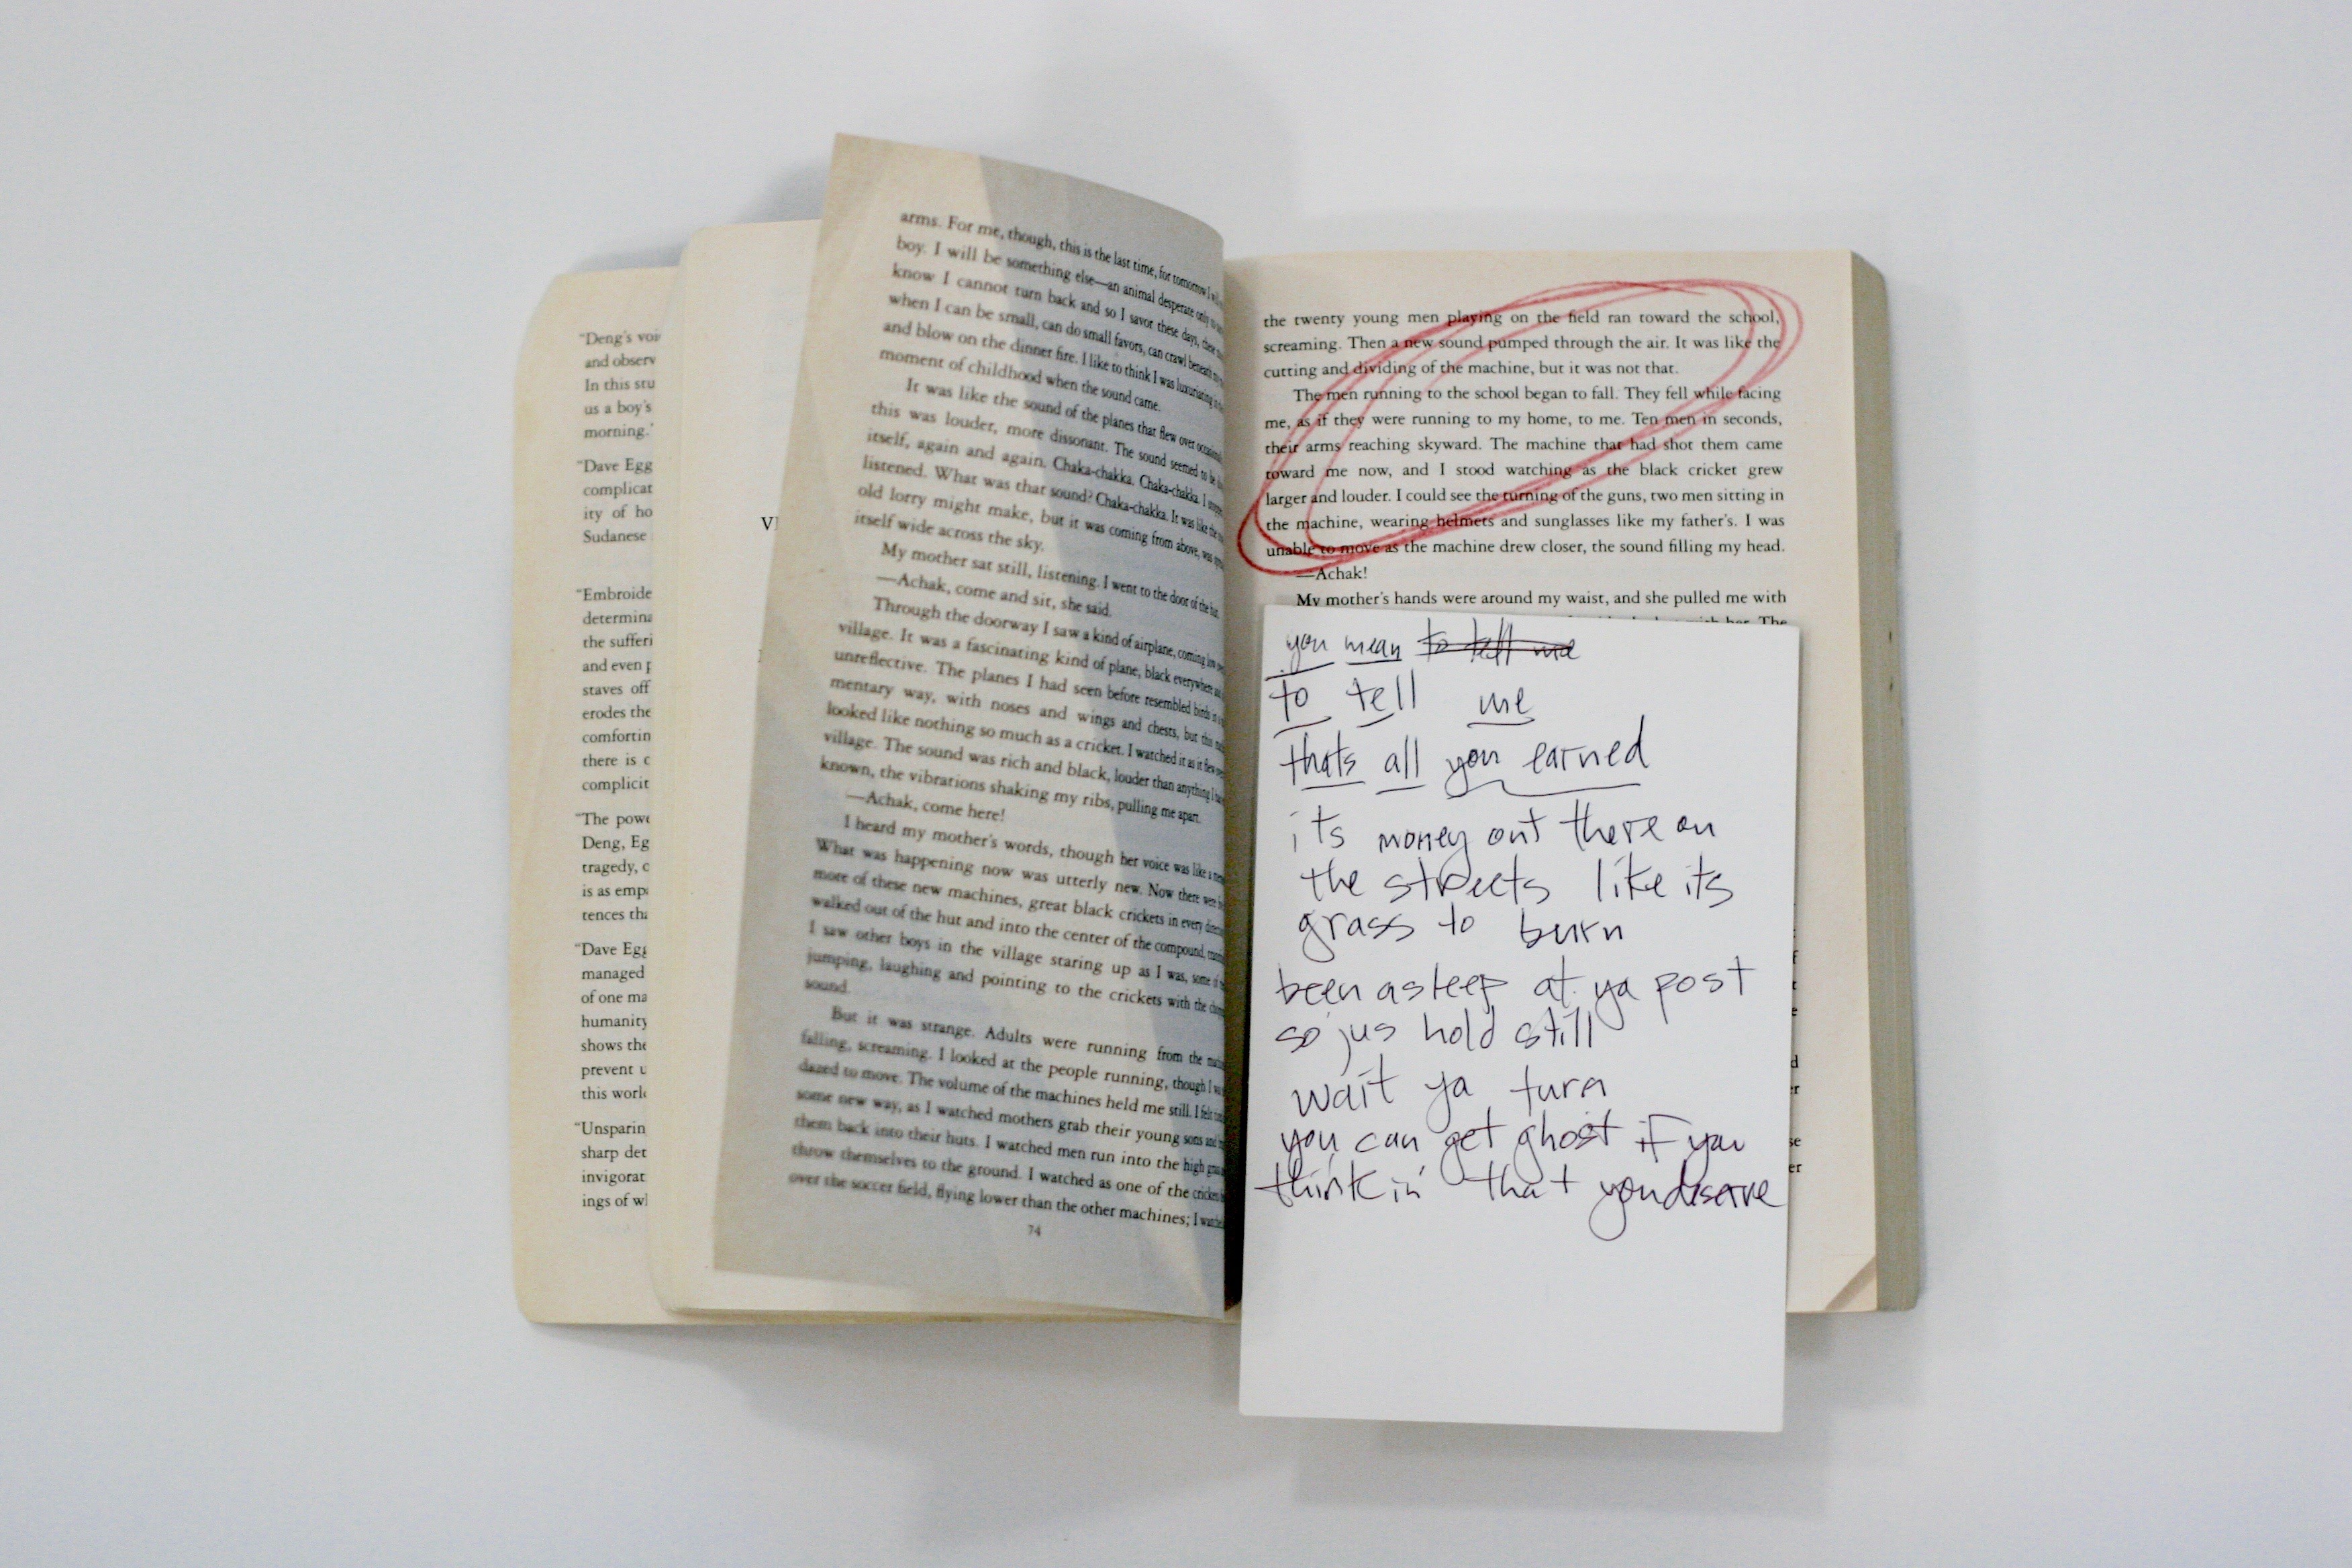 "Deng's voi
and observ
In this stu
us a boy's
morning.'
"Dave Egg
complicat
ity of ho
Sudanese
"Embroide
determina
the sufferi
and even p
staves off
erodes the
comfortin
there is c
complicit
"The powe
Deng, Eg
tragedy, c
is as empa
tences tha
"Dave Egg
managed
of one ma
humanity
shows the
prevent u
this world
"Unsparin
sharp det
invigorat
ings of wl
VI
arms. For me, though, this is the last time, for tomorrow I will
boy. I will be something else—an animal desperate only to
know I cannot turn back and so I savor these days, these
when I can be small, can do small favors, can crawl beneath
and blow on the dinner fire. I like to think I was luxuriating in the
moment of childhood when the sound came.
It was like the sound of the planes that flew over occasionally
this was louder, more dissonant. The sound seemed to be
itself, again and again. Chaka-chakka. Chaka-chakka. I
listened. What was that sound? Chaka-chakka. It was like the
old lorry might make, but it was coming from above, was
itself wide across the sky.
My mother sat still, listening. I went to the door of the hut.
—Achak, come and sit, she said.
Through the doorway I saw a kind of airplane, coming low
village. It was a fascinating kind of plane, black everywhere
unreflective. The planes I had seen before resembled birds in a
mentary way, with noses and wings and chests, but this
looked like nothing so much as a cricket. I watched it as it flew
village. The sound was rich and black, louder than anything I
known, the vibrations shaking my ribs, pulling me apart.
—Achak, come here!
I heard my mother's words, though her voice was like a
What was happening now was utterly new. Now there were
more of these new machines, great black crickets in every
walked out of the hut and into the center of the compound,
I saw other boys in the village staring up as I was, some
jumping, laughing and pointing to the crickets with the
sound.
But it was strange. Adults were running from the
falling, screaming. I looked at the people running, though I
dazed to move. The volume of the machines held me still. I felt
some new way, as I watched mothers grab their young sons and
them back into their huts. I watched men run into the high
throw themselves to the ground. I watched as one of the crickets
over the soccer field, flying lower than the other machines; I
74
the twenty young men playing on the field ran toward the school,
screaming. Then a new sound pumped through the air. It was like the
cutting and dividing of the machine, but it was not that.
The men running to the school began to fall. They fell while facing
me, as if they were running to my home, to me. Ten men in seconds,
their arms reaching skyward. The machine that had shot them came
toward me now, and I stood watching as the black cricket grew
larger and louder. I could see the turning of the guns, two men sitting in
the machine, wearing helmets and sunglasses like my father's. I was
unable to move as the machine drew closer, the sound filling my head.
—Achak!
My mother's hands were around my waist, and she pulled me with
with her. The
you mean to tell me
to tell me
thats all you earned
its money out there on
the streets like its
grass to burn
been asleep at ya post
so jus hold still
wait ya turn
you can get ghost if you
thinkin that you deserve